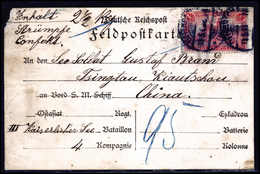 Inhalt 2 P
Strümpfe Deutsche Reichspost
Confekt. Feldpostkarte
An den Seesoldat Gustaf Brand
Tsingtau Kiautschou
an Bord S. M. Schiff China.
Ostasiat Regt. Eskadron
III Kaiserlicher See- Bataillon 95 Batterie
4 Kompagnie Kolonne